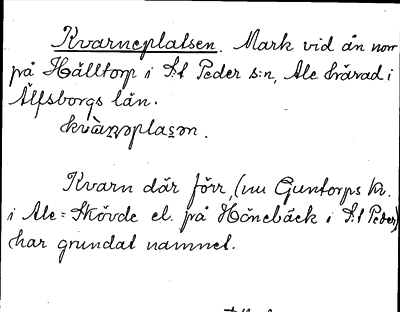 Kvarneplatsen. Mark vid ån norr
på Hälltorp i S:t Peder s:n, Ale härad i
Älfsborgs län.
kvàṇəplasən.
Kvarn där förr, (nu Guntorps kv.
i Ale=Skövde el. på Hönebäck i S:t Peder)
har grundat namnet.